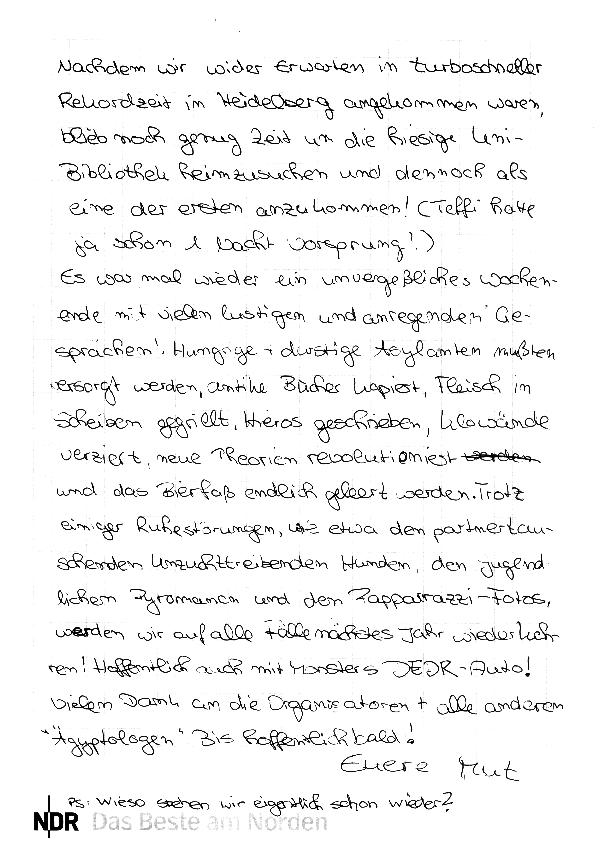 Nachdem wir wider Erwarten in turboschneller
Rekordzeit im Heidelberg angekommen waren,
blieb noch genug Zeit um die hiesige Uni-
Bibliothek heimzusuchen und dennoch als
eine der ersten anzukommen! (Teffi hatte
ja schon 1 Nacht Vorsprung!)
Es war mal wieder ein unvergeßliches Wochen-
ende mit vielen lustigen und anregenden Ge-
sprächen! Hungrige + durstige Asylanten mußten
versorgt werden, antike Bücher kopiert, Fleisch in
Scheiben gegrillt, Hieros geschrieben, Klowände
verziert, neue Theorien revolutioniert werden
und das Bierfaß endlich geleert werden. Trotz
einiger Ruhestörungen, wie etwa den partnertau-
schenden unzuchttreibenden Hunden, den jugend
lichen Pyromanen und den Pappasrazzi-Fotos,
werden wir auf alle Fälle nächstes Jahr wiederkeh-
ren! Hoffentlich auch mit Monsters DEDR-Auto!
Vielen Dank an die Organisatoren + alle anderen
"Ägyptologen" Bis hoffentlich bald!
Euere Mut
Ps: Wieso stehen wir eigentlich schon wieder?
NDR Das Beste am Norden